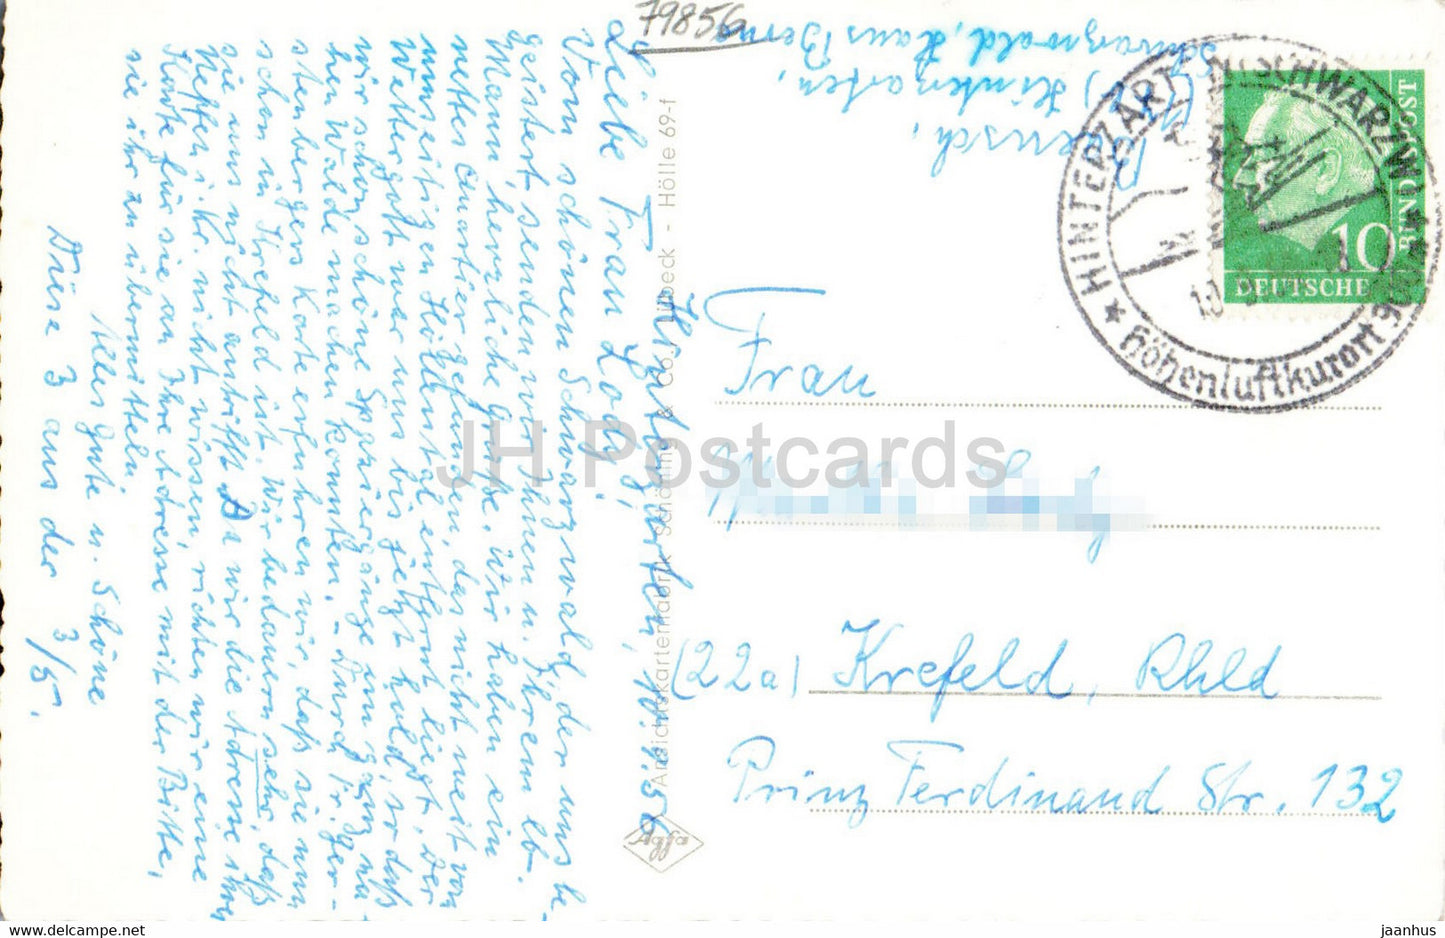 79856
Hinterzarten, 10.9.56
Liebe Frau Loly!
Vom schönen Schwarzwald, der uns be-
geistert senden wir Ihnen u. Ihrem lb.
Mann, herzliche Grüße. Wir haben ein
nettes Quartier gefunden, das nicht weit vom
einseitigen Höllental entfernt liegt. Der
Wettergott war uns bis jetzt hold, so daß
wir schon schöne Spaziergänge im ganz na-
hen Walde machen konnten. - Durch Fr. Ger-
stenbergers Karte erfuhren wir, daß sie nun
schon in Krefeld ist. Wir bedauern sehr, daß
sie uns nicht antrifft. Da wir die Adresse ihres
Neffen i. Kr. nicht wissen, richten wir eine
Karte für sie an Ihre Adresse mit der Bitte,
sie ihr zu übermitteln.
Alles gute u. Schöne
Diese 3 aus der 3/5.
Ansichtskartenfabrik Schöning & Co., Lübeck - Hölle 69-f
Agfa
Hinterzarten,
Schwarzwald, Haus Berna
HINTERZARTEN (SCHWARZW)
Höhenluftkurort
DEUTSCHE
BUNDESPOST
10
Frau
(22a) Krefeld, Rhld
Prinz Ferdinand Str. 132
JH Postcards
jaanhus